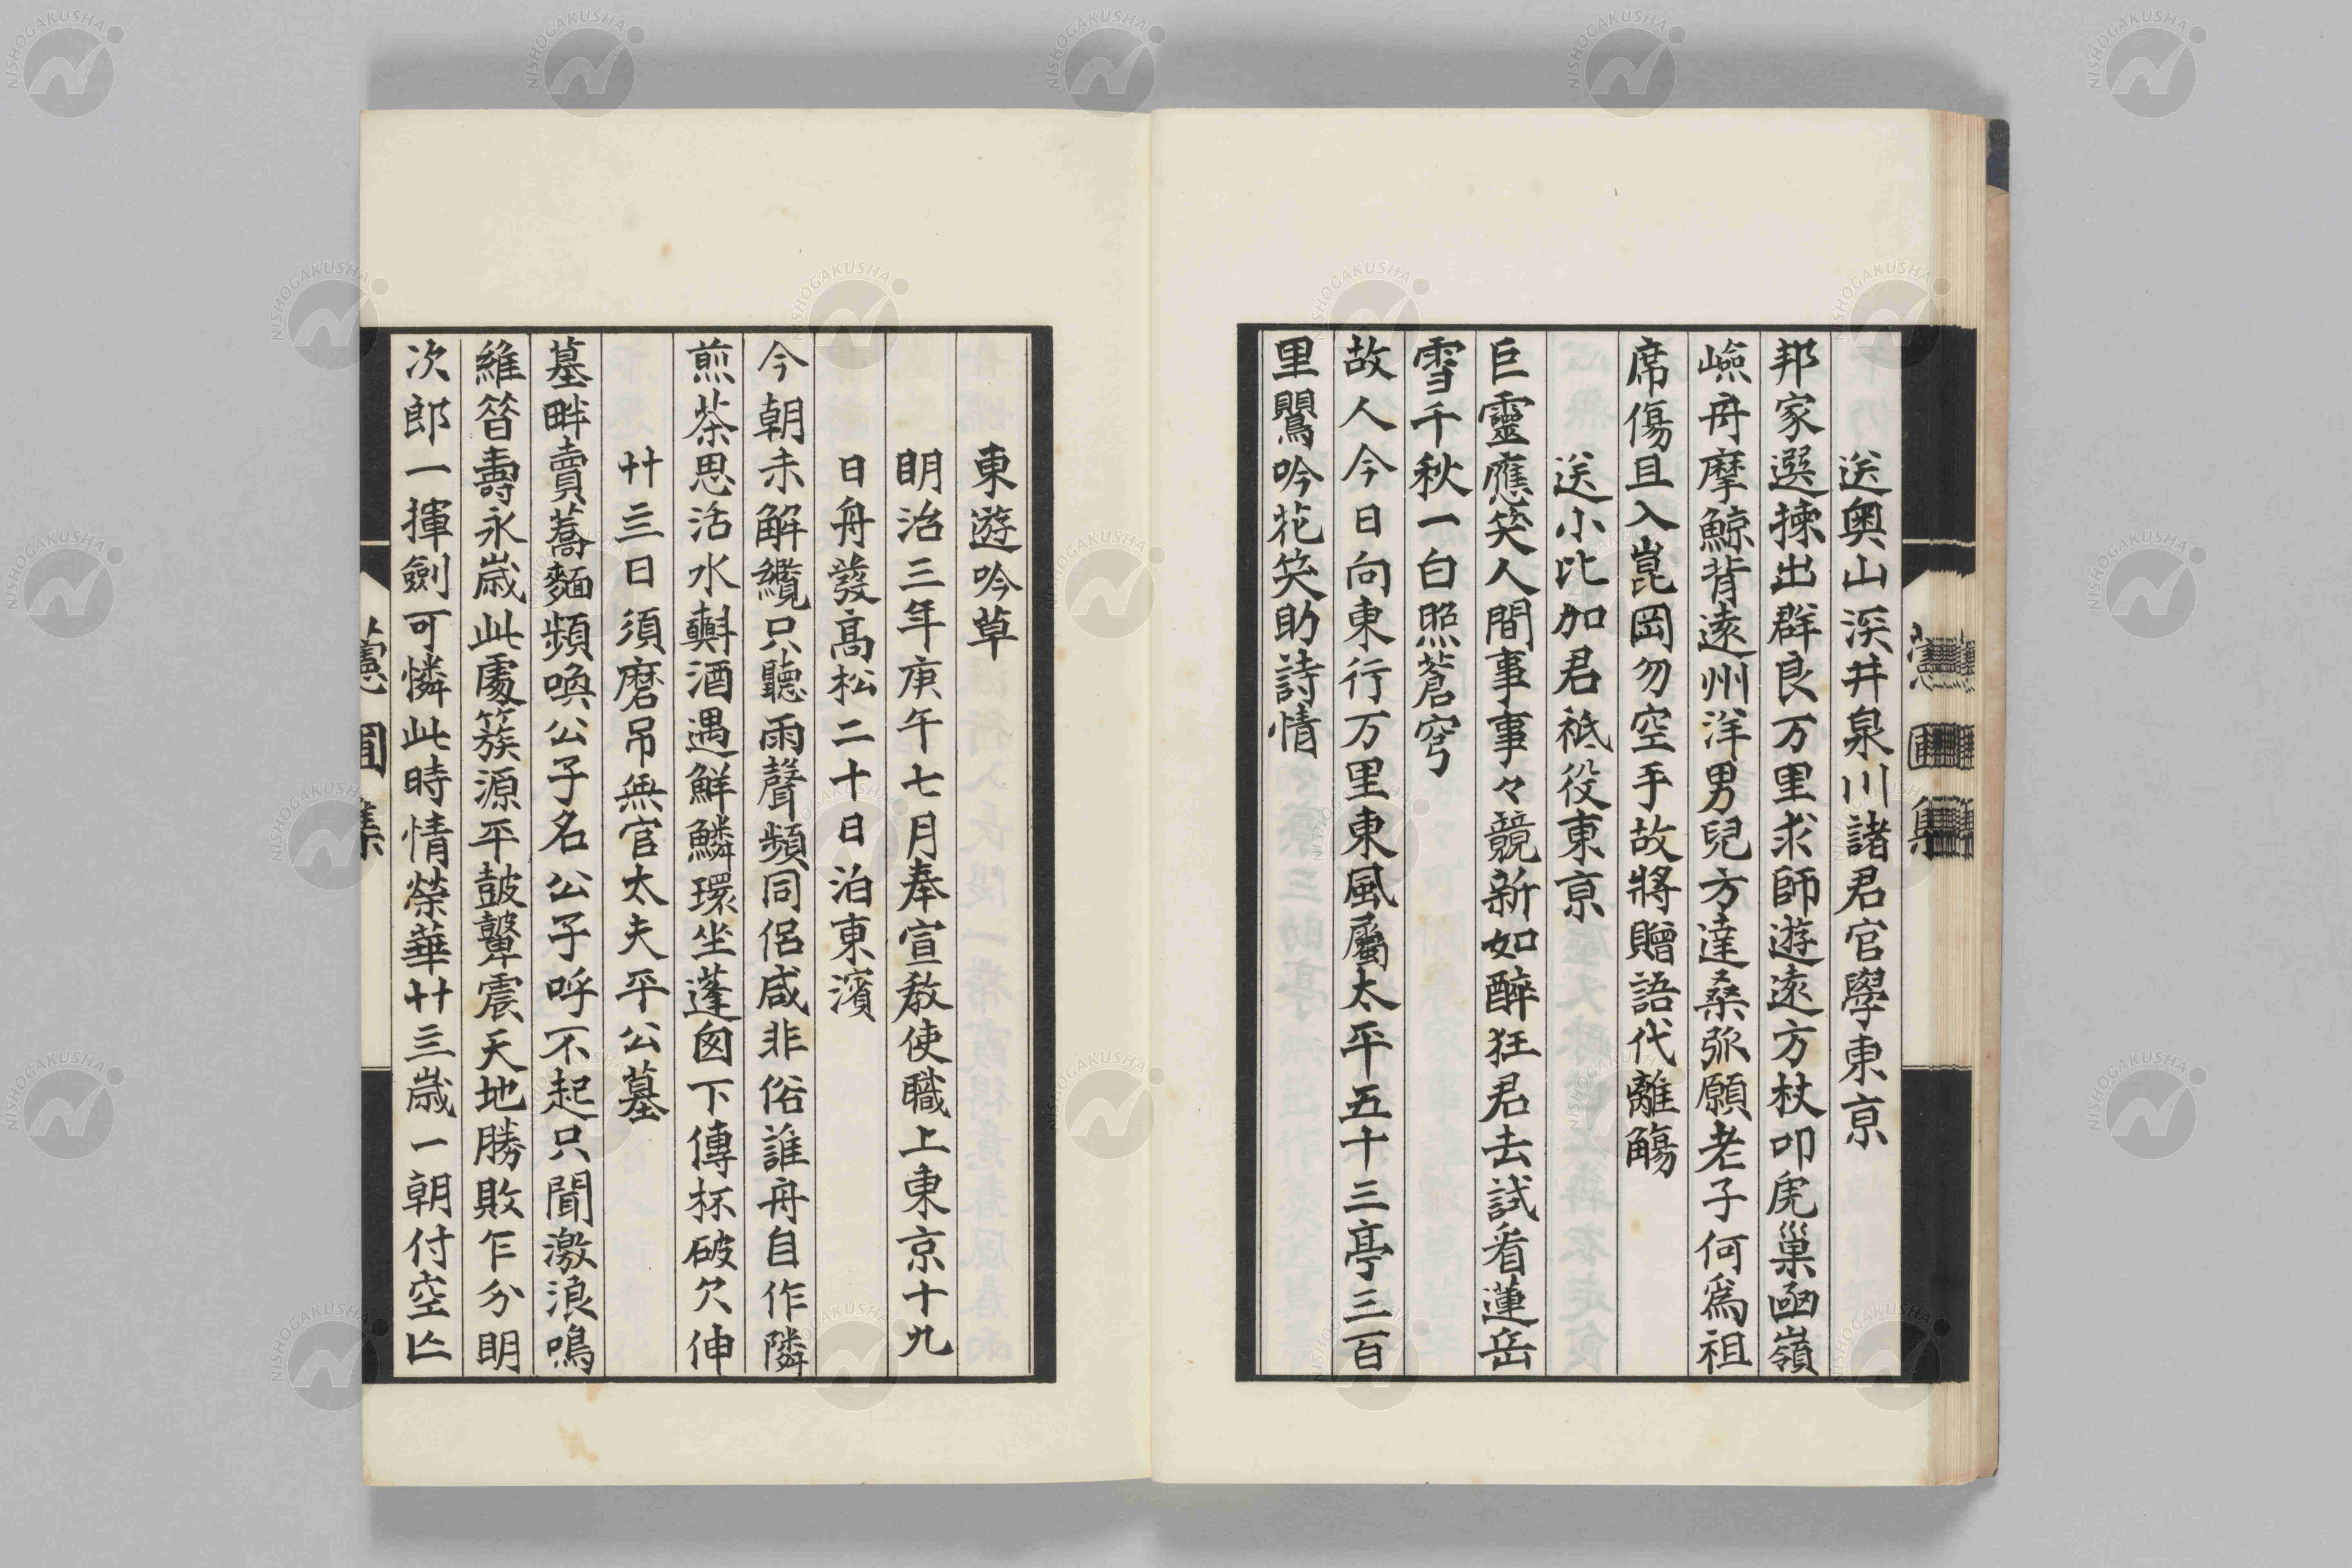 送奥山深井泉川諸君官學東京
邦家選揀出群良万里求師遊遠方杖叩虎巢凾嶺
嶮舟摩鯨背遠州洋男兒方達桑弧願老子何爲祖
席傷且入崑岡勿空手故將贈語代離觴
送小比加君祗役東京
巨靈應笑人間事事々競新如醉狂君去試看蓮岳
雪千秋一白照蒼穹
故人今日向東行万里東風屬太平五十三亭三百
里鸎吟花笑助詩情
東遊吟草
明治三年庚午七月奉宣教使職上東京十九
日舟發高松二十日泊東濱
今朝未解纜只聽雨聲頻同侶咸非俗誰舟自作隣
煎茶思活水㪺酒遇鮮鱗環坐蓬囱下傳杯破欠伸
廿三日須磨吊無官太夫平公墓
墓畔賣蕎麵頻喚公子名公子呼不起只聞激浪鳴
維昝壽永歳此處簇源平鼓鼙震天地勝敗乍分明
次郎一揮劍可憐此時情榮華廿三歳一朝付空亾
憲圃集
NISHOGAKUSHA